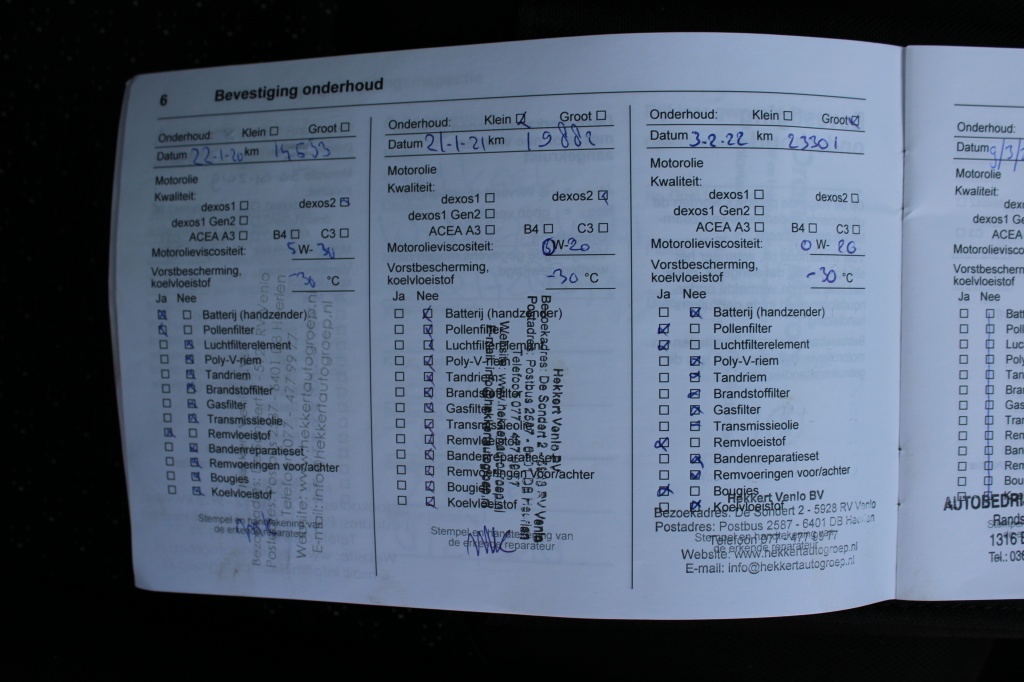 6 Bevestiging onderhoud
Onderhoud: Klein Groot
Datum 22-1-20 km
Motorolie
Kwaliteit:
dexos1 dexos2
dexos1 Gen2
ACEA A3 B4 C3
Motorolieviscositeit: 5 W- 30
Vorstbescherming,
koelvloeistof -30 °C
Ja Nee
Batterij (handzender)
Pollenfilter
Luchtfilterelement
Poly-V-riem
Tandriem
Brandstoffilter
Gasfilter
Transmissieolie
Remvloeistof
Bandenreparatieset
Remvoeringen voor/achter
Bougies
Koelvloeistof
Stempel en handtekening van
de erkende reparateur
Website: www.hekkertautogroep.nl
E-mail: info@hekkertautogroep.nl
Onderhoud: Klein Groot
Datum 21-1-21 km 19882
Motorolie
Kwaliteit:
dexos1 dexos2
dexos1 Gen2
ACEA A3 B4 C3
Motorolieviscositeit: 0 W- 20
Vorstbescherming,
koelvloeistof -30 °C
Ja Nee
Batterij (handzender)
Pollenfilter
Luchtfilterelement
Poly-V-riem
Tandriem
Brandstoffilter
Gasfilter
Transmissieolie
Remvloeistof
Bandenreparatieset
Remvoeringen voor/achter
Bougies
Koelvloeistof
Stempel en handtekening van
de erkende reparateur
Hekkert Venlo BV
Bezoekadres: De Sondert 2 - 5928 RV Venlo
Postadres: Postbus 2587 - 6401 DB
Onderhoud: Klein Groot
Datum 3-2-22 km 23301
Motorolie
Kwaliteit:
dexos1 dexos2
dexos1 Gen2
ACEA A3 B4 C3
Motorolieviscositeit: 0 W- 20
Vorstbescherming,
koelvloeistof -30 °C
Ja Nee
Batterij (handzender)
Pollenfilter
Luchtfilterelement
Poly-V-riem
Tandriem
Brandstoffilter
Gasfilter
Transmissieolie
Remvloeistof
Bandenreparatieset
Remvoeringen voor/achter
Bougies
Koelvloeistof
Hekkert Venlo BV
Bezoekadres: De Sondert 2 - 5928 RV Venlo
Postadres: Postbus 2587 - 6401 DB
Stempel en handtekening van
de erkende reparateur
Telefoon 077 - 477 99 77
Website: www.hekkertautogroep.nl
E-mail: info@hekkertautogroep.nl
Onderhoud:
Datum 9/3/
Motorolie
Kwaliteit:
Motorolievis
Vorstbescherm
koelvloeistof
Ja Nee
Batt
Poll
Luc
Poly
Tan
Bra
Gas
Tra
Rem
Ban
Rem
Bou
Koe
AUTOBEDRI
Rands
1316 E
Tel.: 036